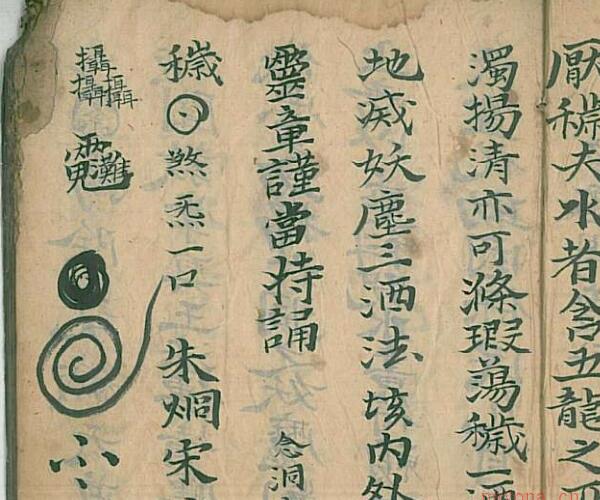 厭穢夫水者含五龍之
濁揚清亦可滌瑕蕩穢一洒
地滅妖塵三洒法垓内外
靈章謹當持誦 念洞
穢 煞炁一口 朱炯宋
攝攝攝